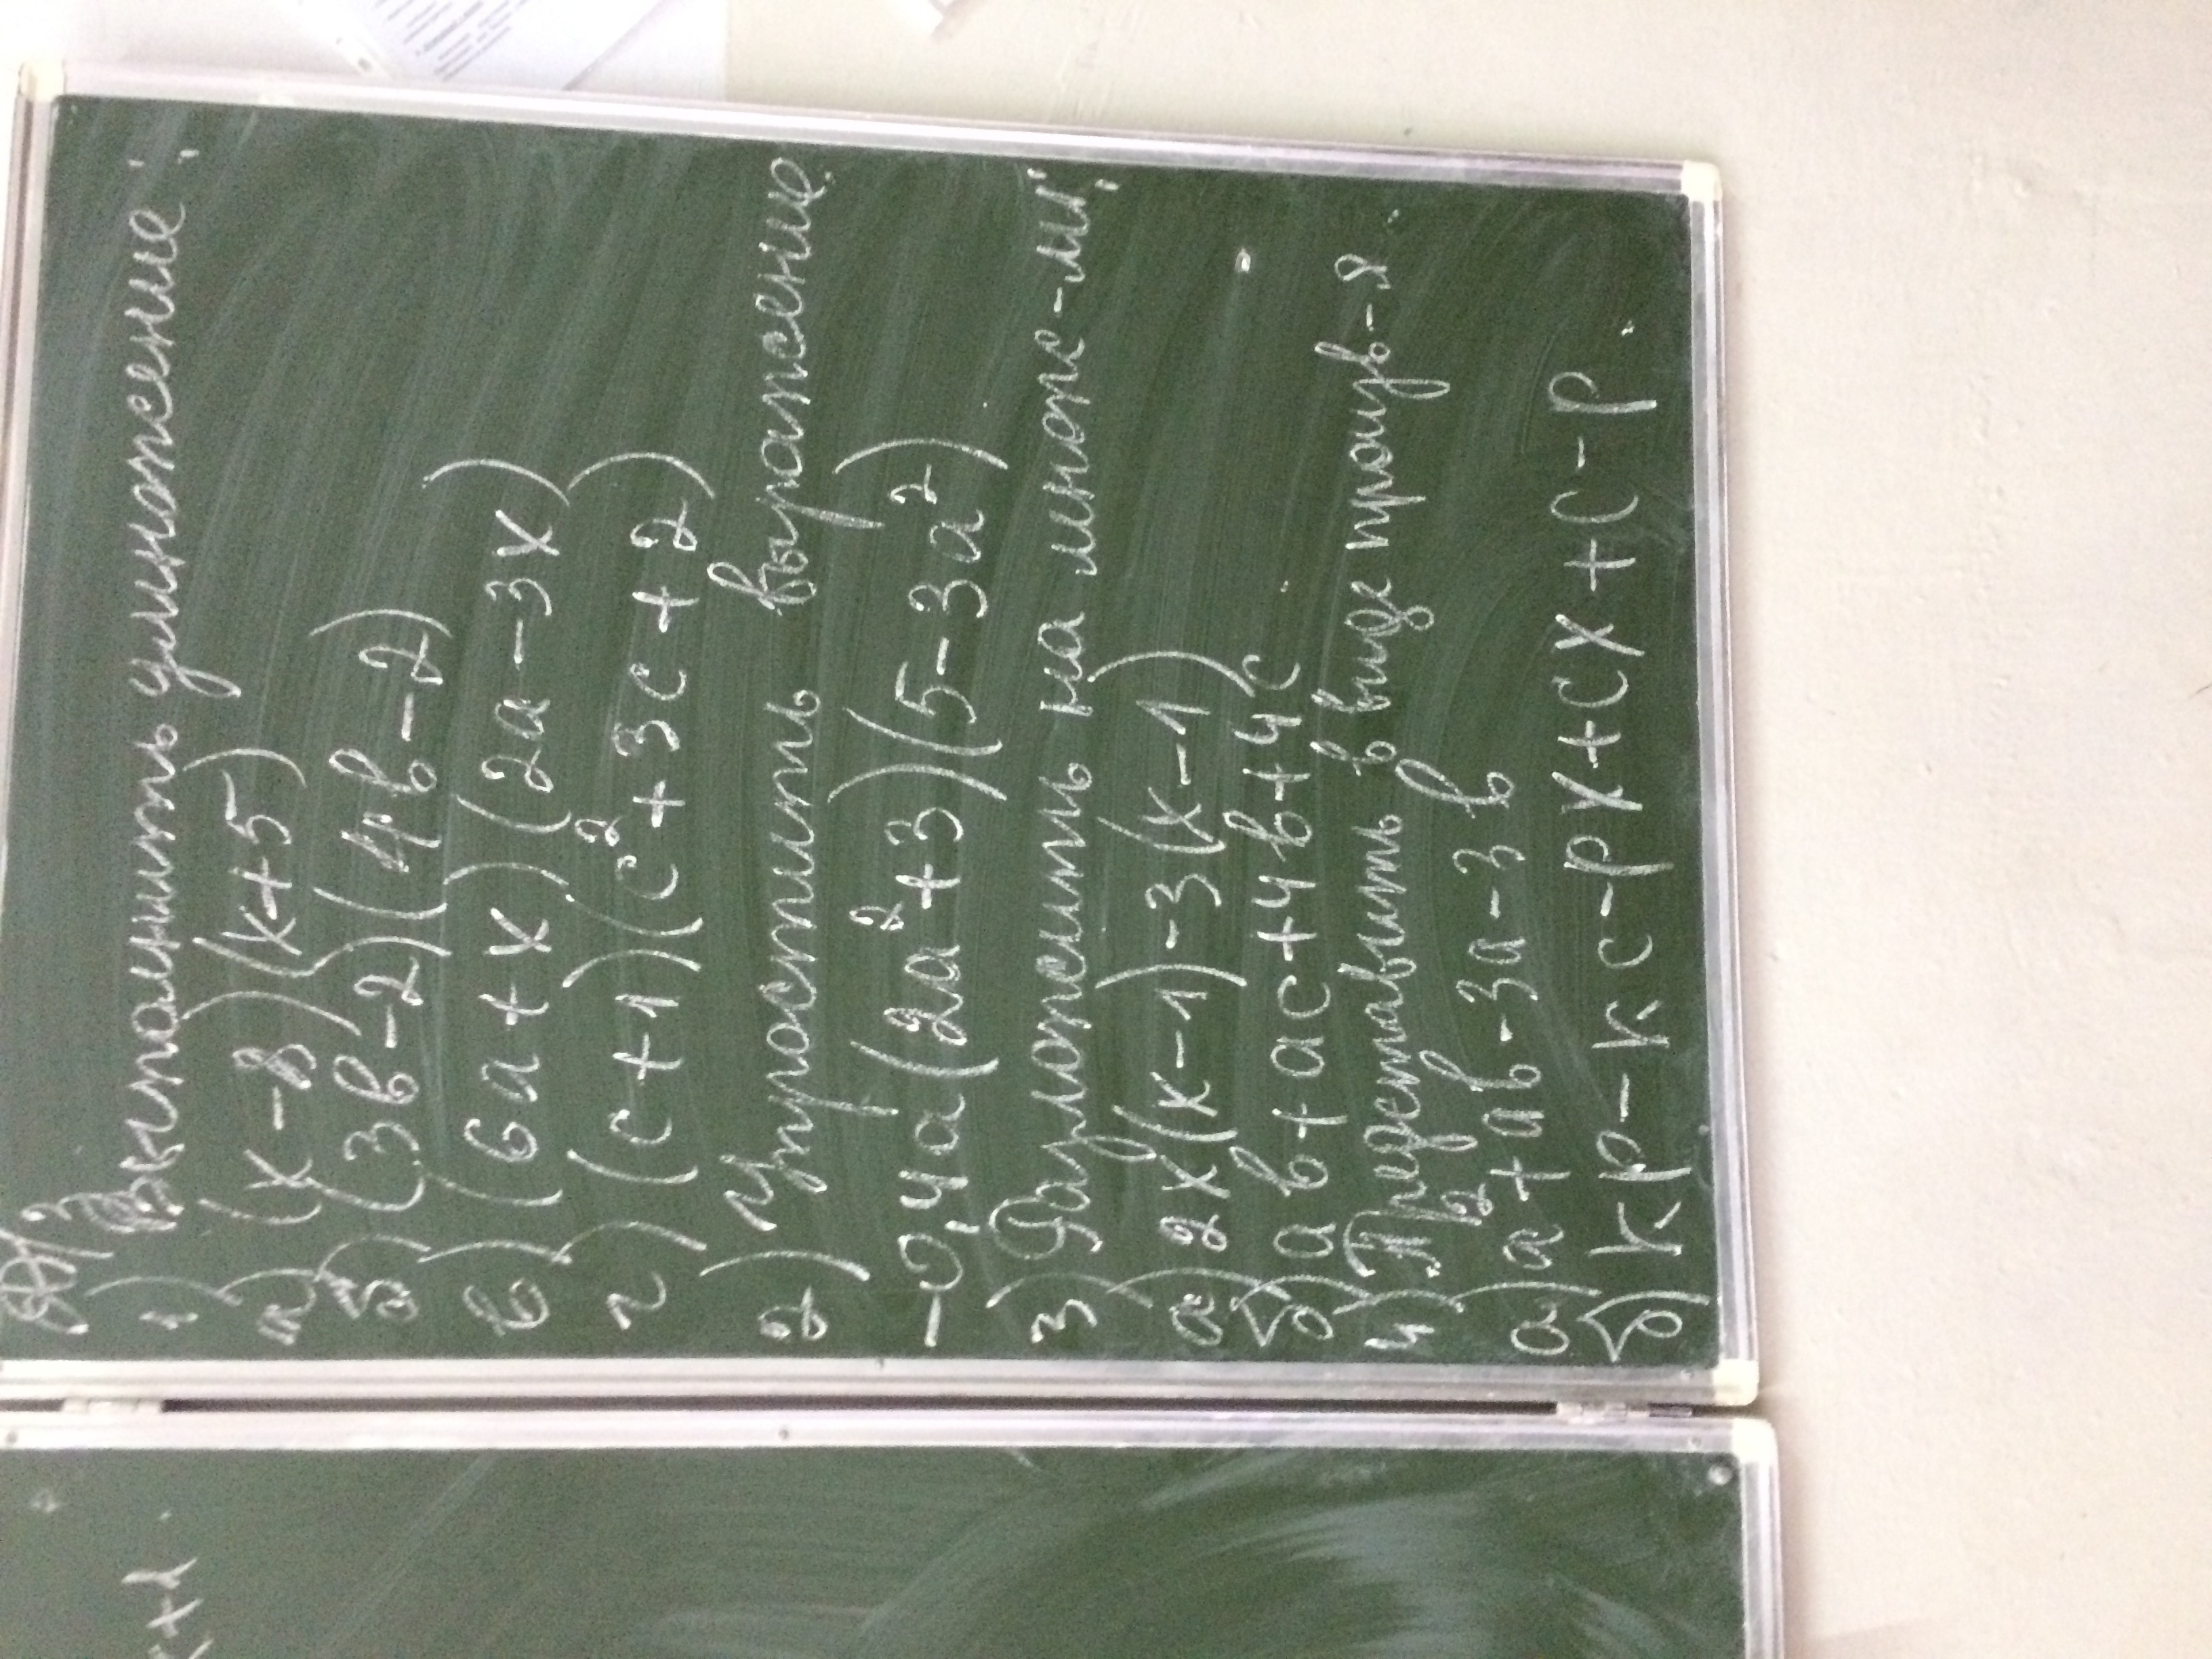 Д/З
1) Выполнить умножение:
а) (x-8)(x+5)
б) (3b-2)(4b-2)
в) (6a+x)(2a-3x)
г) (c+1)(c²+3c+2)
2) Упростить выражение:
-0,4a(2a²+3)(5-3a²)
3) Разложить на множ-ли:
а) 2x(x-1)-3(x-1)
б) ab+ac+4b+4c
4) Представить в виде произв-я
а) a²+ab-3a-3b
б) kp-kc-px+cx+c-p.